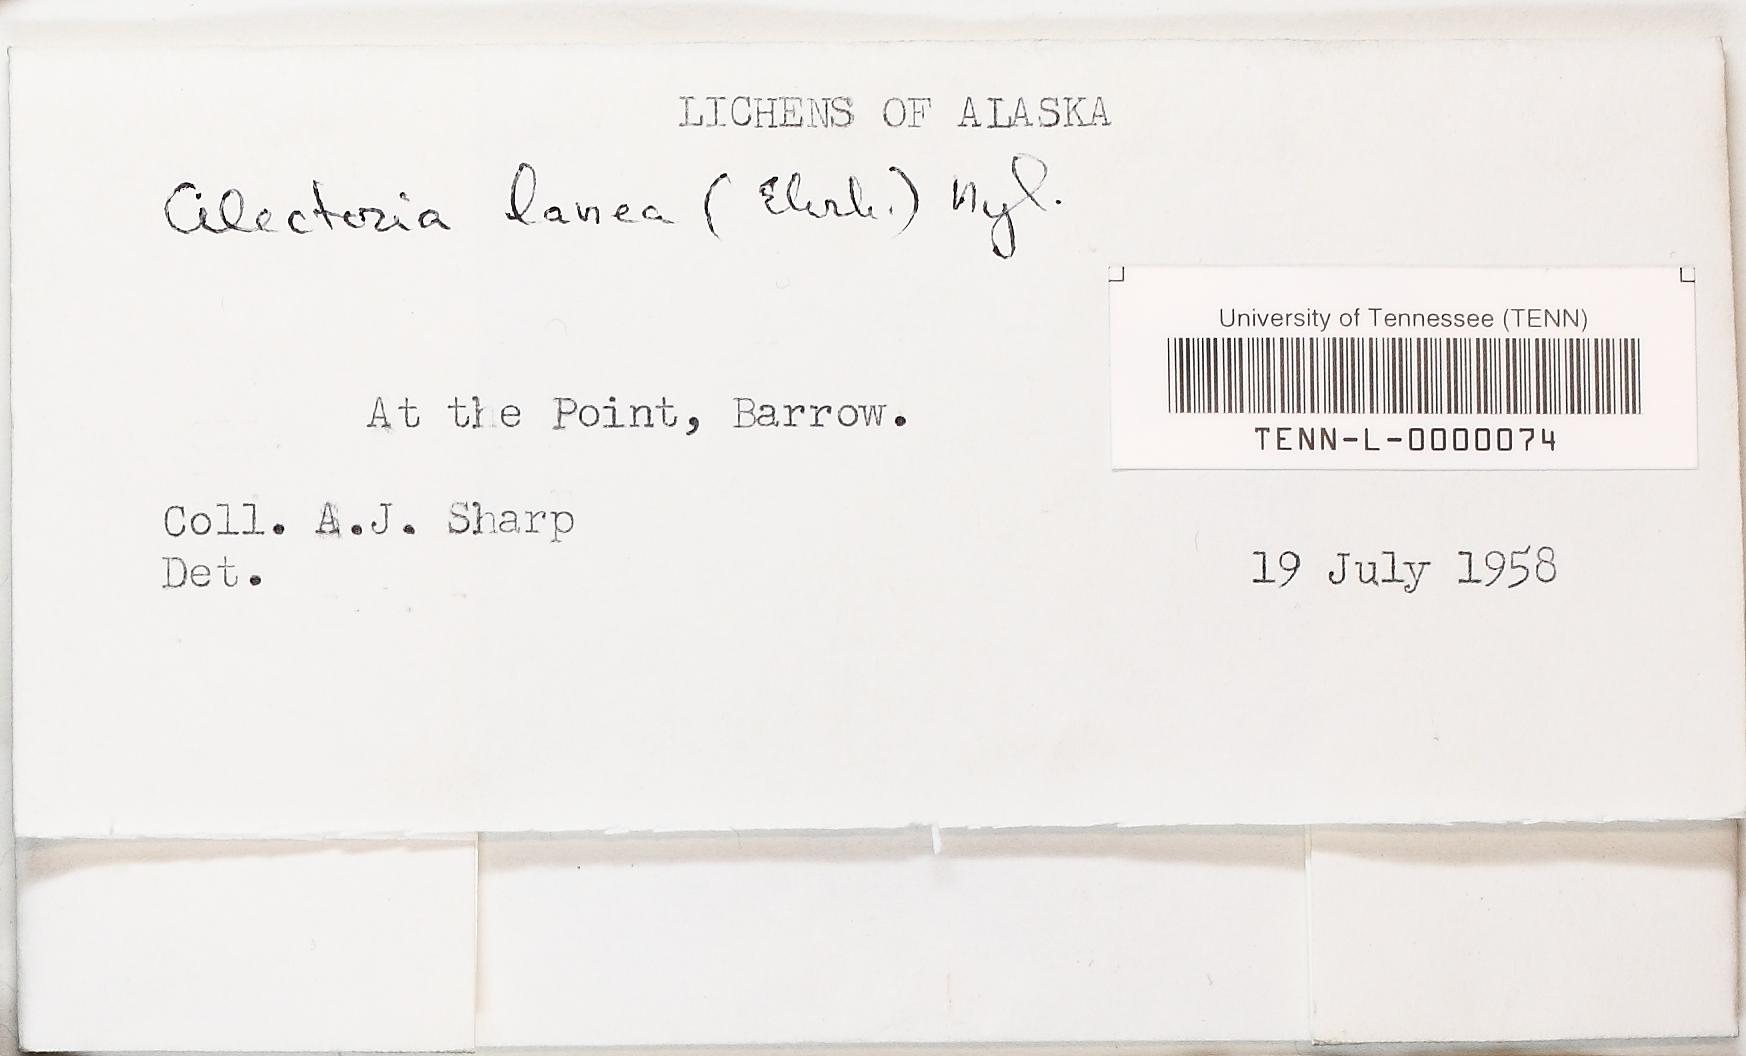 LICHENS OF ALASKA
Alectoria lanea (Ehrh.) Nyl.
University of Tennessee (TENN)
TENN-L-0000074
At the Point, Barrow.
Coll. A.J. Sharp
Det.
19 July 1958